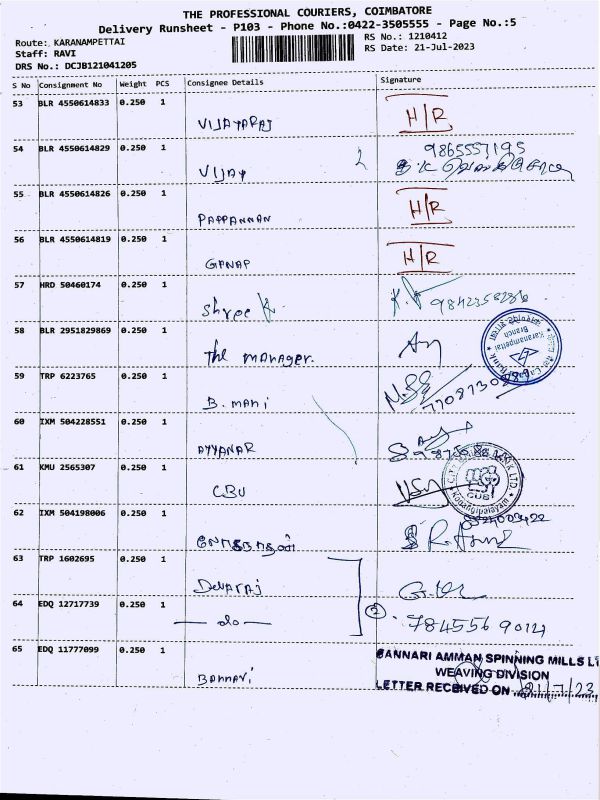 THE PROFESSIONAL COURIERS, COIMBATORE
Delivery Runsheet - P103 - Phone No.:0422-3505555 - Page No.:5
Route: KARANAMPETTAI
RS No.: 1210412
Staff: RAVI
RS Date: 21-Jul-2023
DRS No.: DCJB121041205
S No Consignment No Weight PCS Consignee Details Signature
53 BLR 4550614833 0.250 1
VIJAYARAJ H/R
54 BLR 4550614829 0.250 1 9865557195
VIJAY
55 BLR 4550614826 0.250 1
PAPPANNAN H/R
56 BLR 4550614819 0.250 1
GANAP H/R
57 HRD 50460174 0.250 1
Shree
58 BLR 2951829869 0.250 1
The MANAGER.
Karanampettai
Branch
59 TRP 6223765 0.250 1
B. MANI
60 IXM 504228551 0.250 1
AYYANAR
61 KMU 2565307 0.250 1
CBU
CUB
62 IXM 504198006 0.250 1
63 TRP 1602695 0.250 1
Devaraj
64 EDQ 12717739 0.250 1
do
2
65 EDQ 11777099 0.250 1
BANNARI AMMAN SPINNING MILLS LT
WEAVING DIVISION
Bannari
LETTER RECEIVED ON 21/7/23